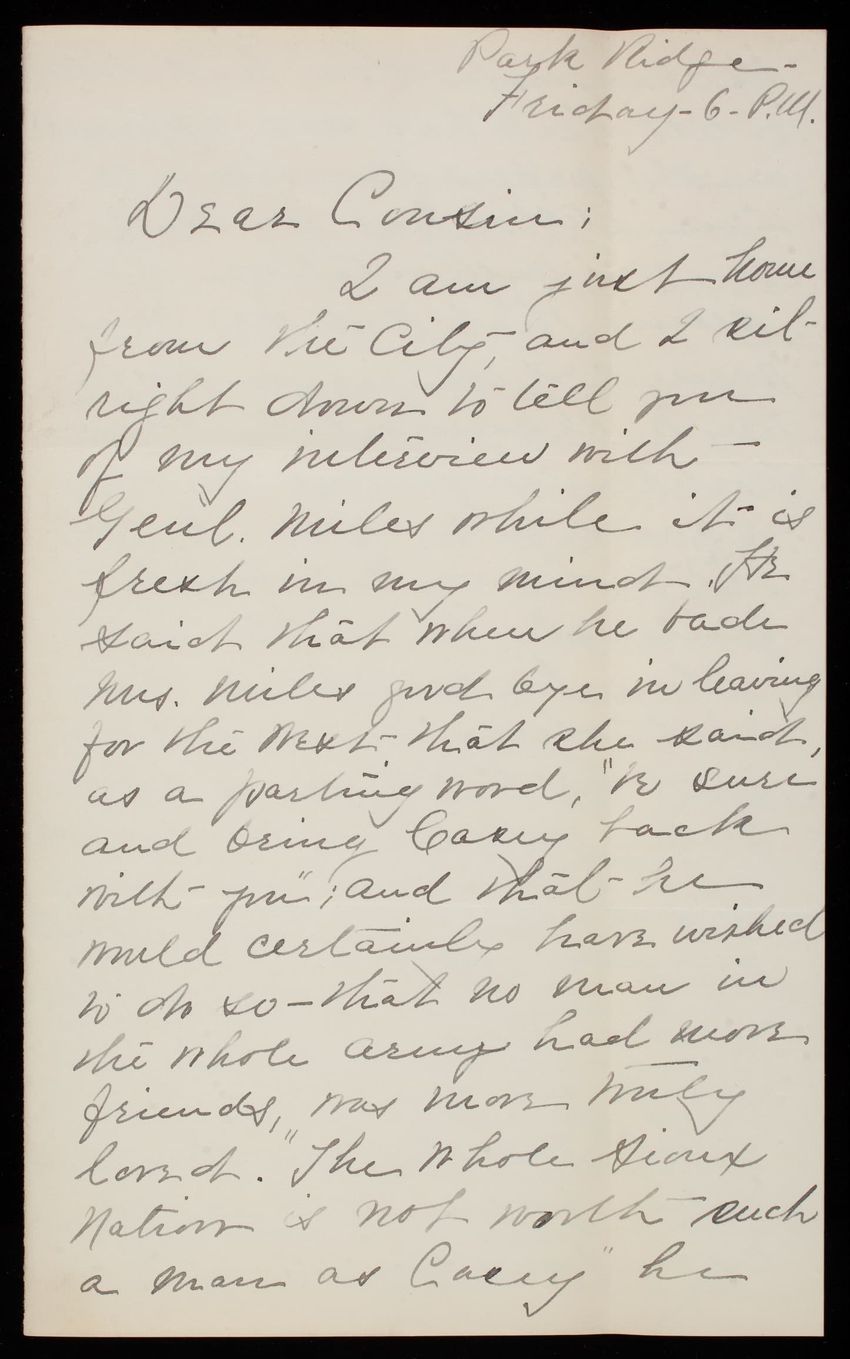 Park Ridge -
Friday - 6 - P.M.
Dear Cousin;
I am just home
from the City, and I sit
right down to tell you
of my interview with
Genl. Miles while it is
fresh in my mind. He
said that when he bade
Mrs. Miles good bye in leaving
for the West that she said,
as a parting word, "be sure
and bring Casey back
with you"; and that he
would certainly have wished
to do so - that no man in
the whole army had more
friends, was more truly
loved. "The whole Sioux
Nation is not worth such
a man as Casey" he